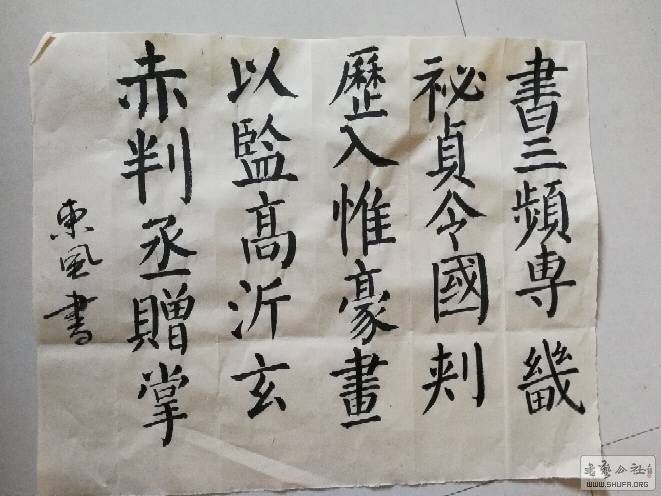 書三頻專畿
祕貞令國刾
歷入惟豪畫
以監高沂玄
赤判丞贈掌
東風書
书艺公社
WWW.SHUFA.ORG